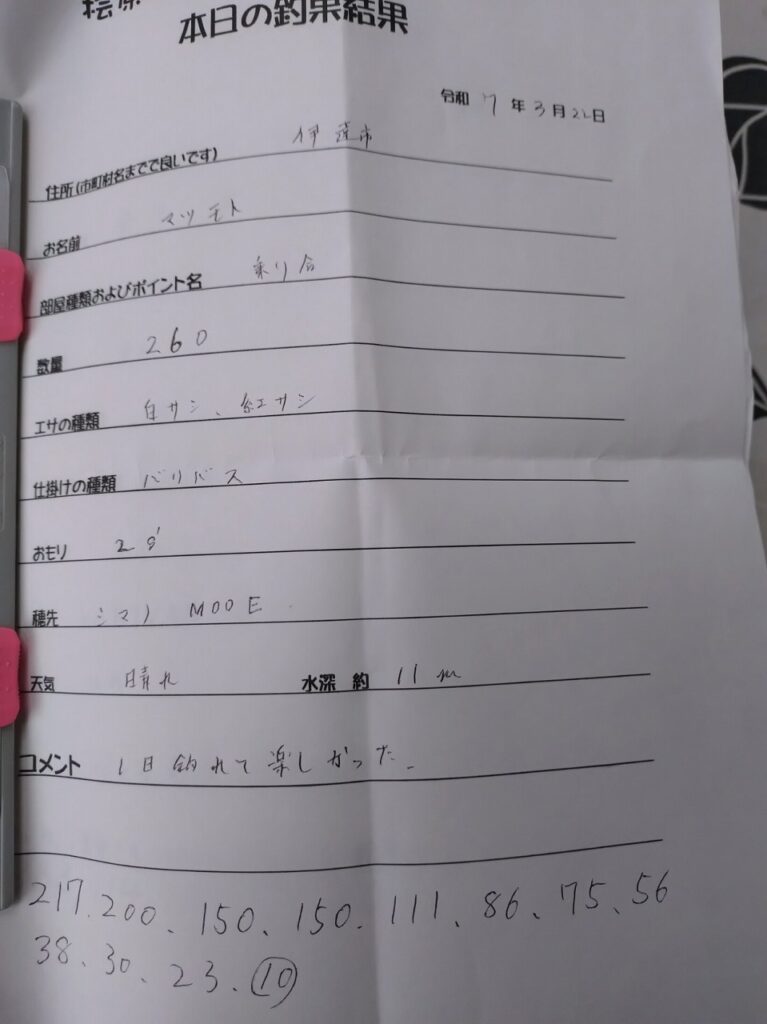 桧原
本日の釣果結果
令和 7 年 3 月 22 日
住所(市町村名までで良いです) 伊達市
お名前 マツモト
部屋種類およびポイント名 乗り合
数量 260
エサの種類 白サシ、紅サシ
仕掛けの種類 バリバス
おもり 2g
穂先 シマノ M00E
天気 晴れ 水深 約 11m
コメント 1日釣れて楽しかった。
217.200、150、150.111、86、75、56
38、30、23.⑩